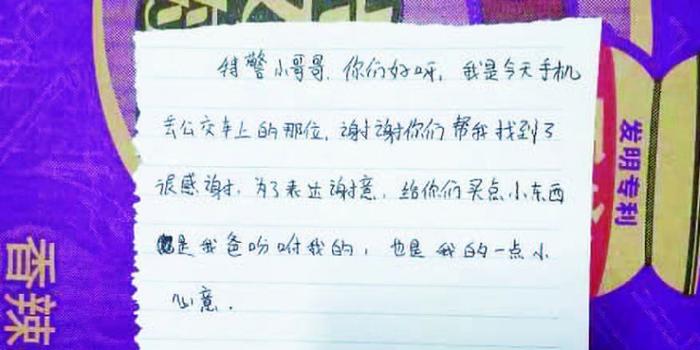 特警小哥哥、你们好呀，我是今天手机
丢公交车上的那位，谢谢你们帮我找到了
很感谢，为了表达谢意，给你们买点小东西
是我爸吩咐我的，也是我的一点小
心意.
发明专利
香辣